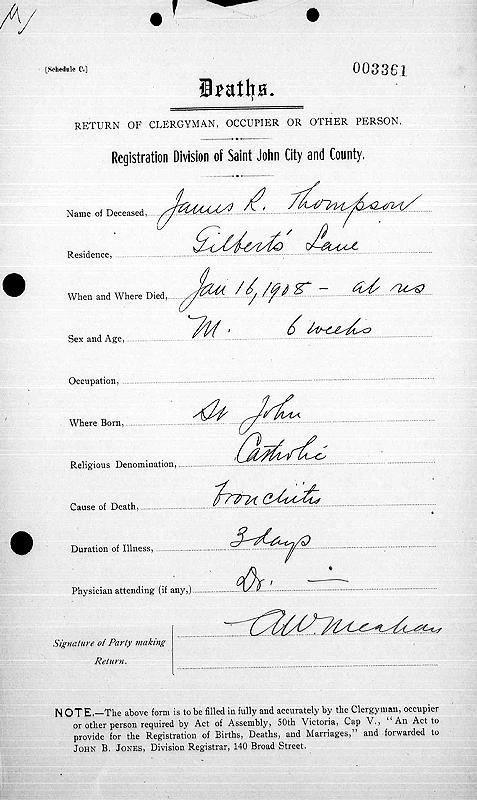 [Schedule C.]
003361
Deaths.
RETURN OF CLERGYMAN, OCCUPIER OR OTHER PERSON.
Registration Division of Saint John City and County.
Name of Deceased, James R. Thompson
Residence, Gilberts' Lane
When and Where Died, Jan 16, 1908 – at res
Sex and Age, M. 6 weeks
Occupation,
Where Born, St John
Religious Denomination, Catholic
Cause of Death, bronchitis
Duration of Illness, 3 days
Physician attending (if any,) Dr. —
Signature of Party making
Return.
NOTE.—The above form is to be filled in fully and accurately by the Clergyman, occupier
or other person required by Act of Assembly, 50th Victoria, Cap V., "An Act to
provide for the Registration of Births, Deaths, and Marriages," and forwarded to
JOHN B. JONES, Division Registrar, 140 Broad Street.